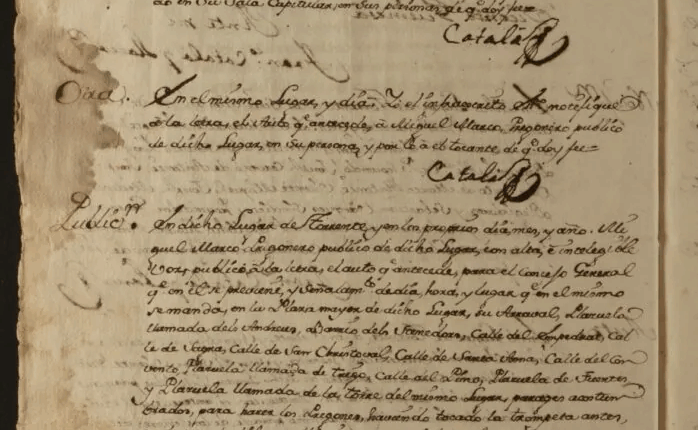 do en su Sala Capitular, en sus personas de q.e doy fee=
Catalá
Otra. En el mismo Lugar, y dia: Yo el infraescrito Ess.no notifiqué
a la letra, el Auto q.e antecede, à Miguel Marco, Pregonero publico
de dicho Lugar, en su persona, y por lo à el tocante, de q.e doy fee=
Catalá
Public.on En dicho Lugar de Torrente, y en los propios dia, mes, y año. Mi
guel Marco Pregonero publico de dicho Lugar, con alta, è inteligible
voz, publicó à la letra, el auto q.e antecede, para el Concejo General
q.e en èl se previene, y señalam.to de dia, hora, y lugar q.e en el mismo
se manda, en la Plaza mayor de dicho Lugar, su Arraval, Plazuela
llamada dels Andreus, Barrio dels Carredors, Calle del Empedrat, Cal
le de Sagra, Calle de San Christoval, Calle de Santa Anna, Calle del Con
vento, Plazuela llamada de Calle del Pino, Plazuela de Fuentes
y Plazuela llamada de la torre del mismo Lugar, parages acostum
brados, para hacer los Pregones, haviendo tocado la trompeta antes,